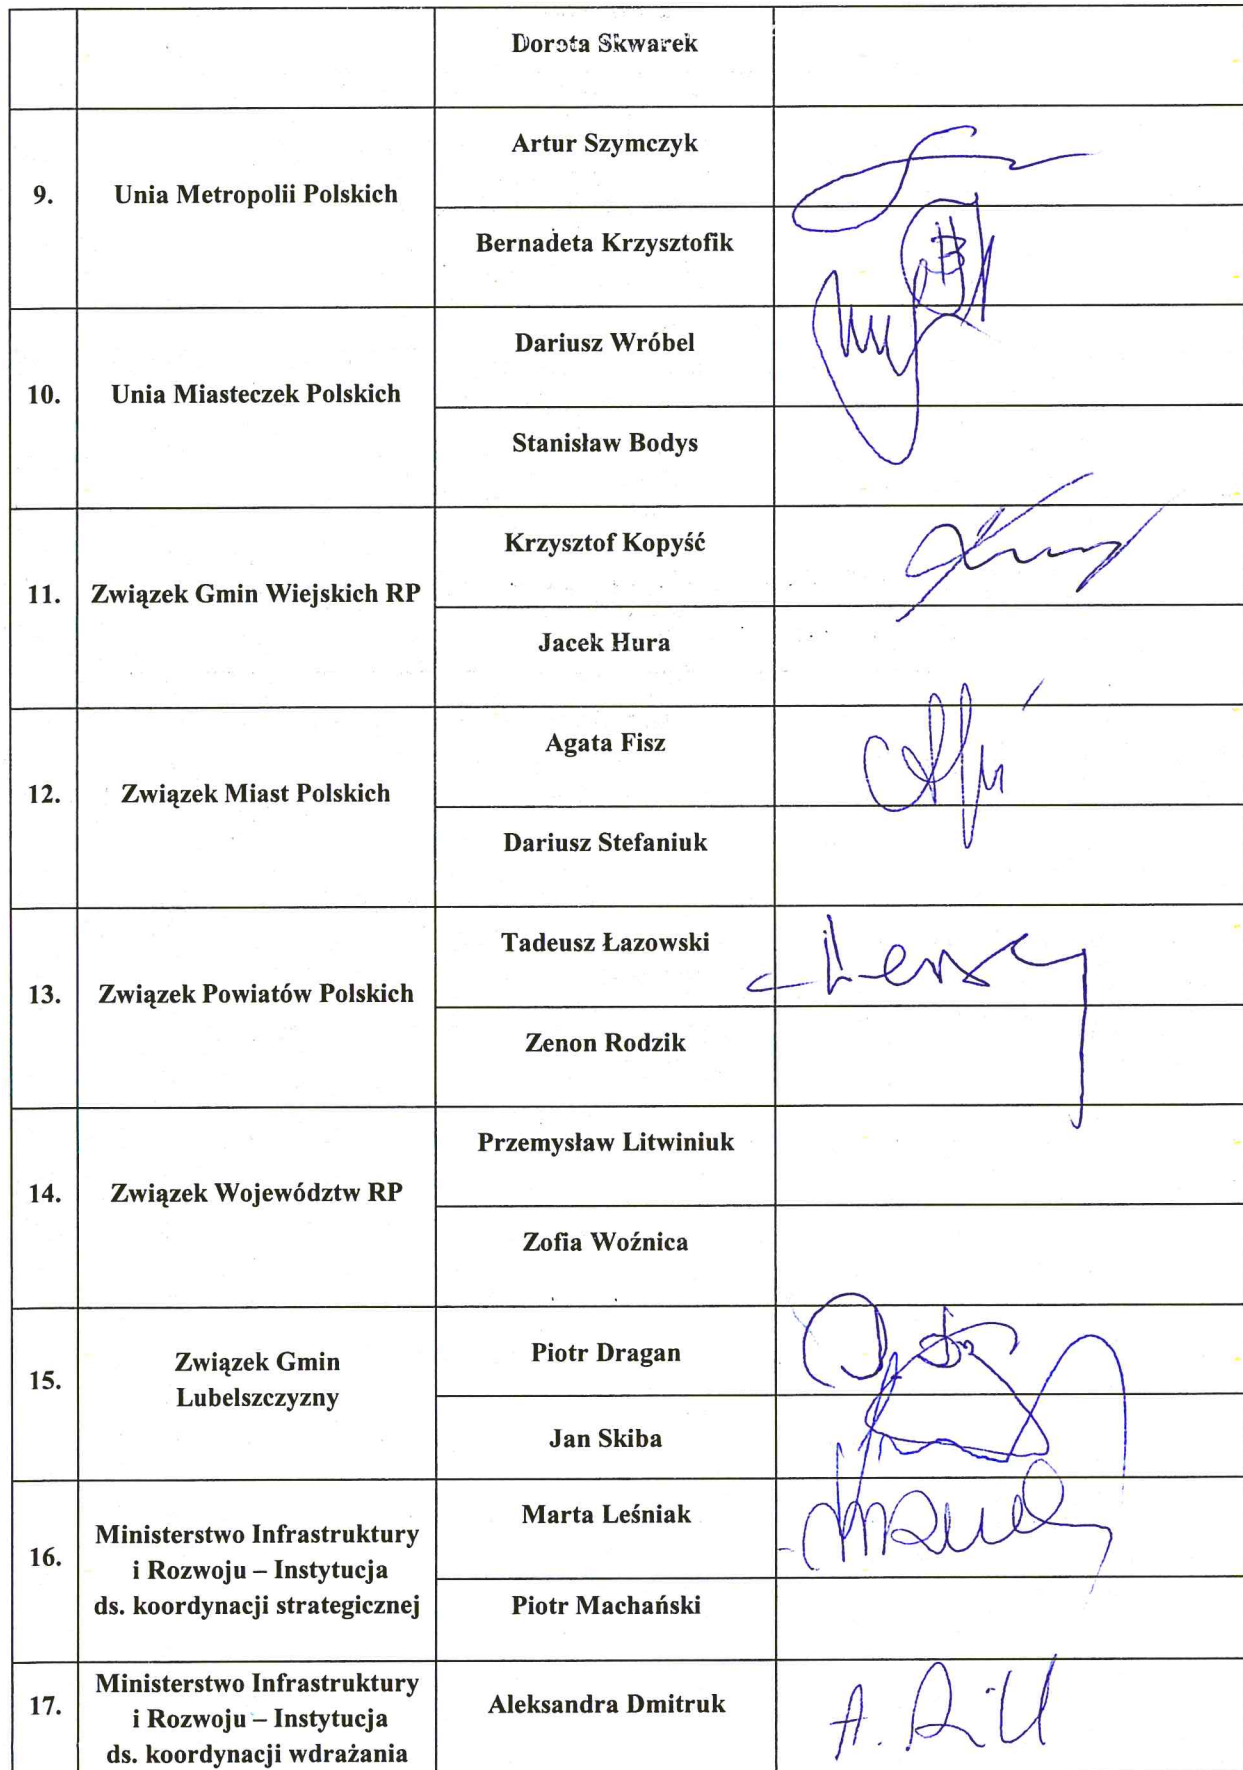 Dorota Skwarek
9.
Unia Metropolii Polskich
Artur Szymczyk
Bernadeta Krzysztofik
10.
Unia Miasteczek Polskich
Dariusz Wróbel
Stanisław Bodys
11.
Związek Gmin Wiejskich RP
Krzysztof Kopyść
Jacek Hura
12.
Związek Miast Polskich
Agata Fisz
Dariusz Stefaniuk
13.
Związek Powiatów Polskich
Tadeusz Łazowski
Zenon Rodzik
14.
Związek Województw RP
Przemysław Litwiniuk
Zofia Woźnica
15.
Związek Gmin
Lubelszczyzny
Piotr Dragan
Jan Skiba
16.
Ministerstwo Infrastruktury
i Rozwoju – Instytucja
ds. koordynacji strategicznej
Marta Leśniak
Piotr Machański
17.
Ministerstwo Infrastruktury
i Rozwoju – Instytucja
ds. koordynacji wdrażania
Aleksandra Dmitruk
A.